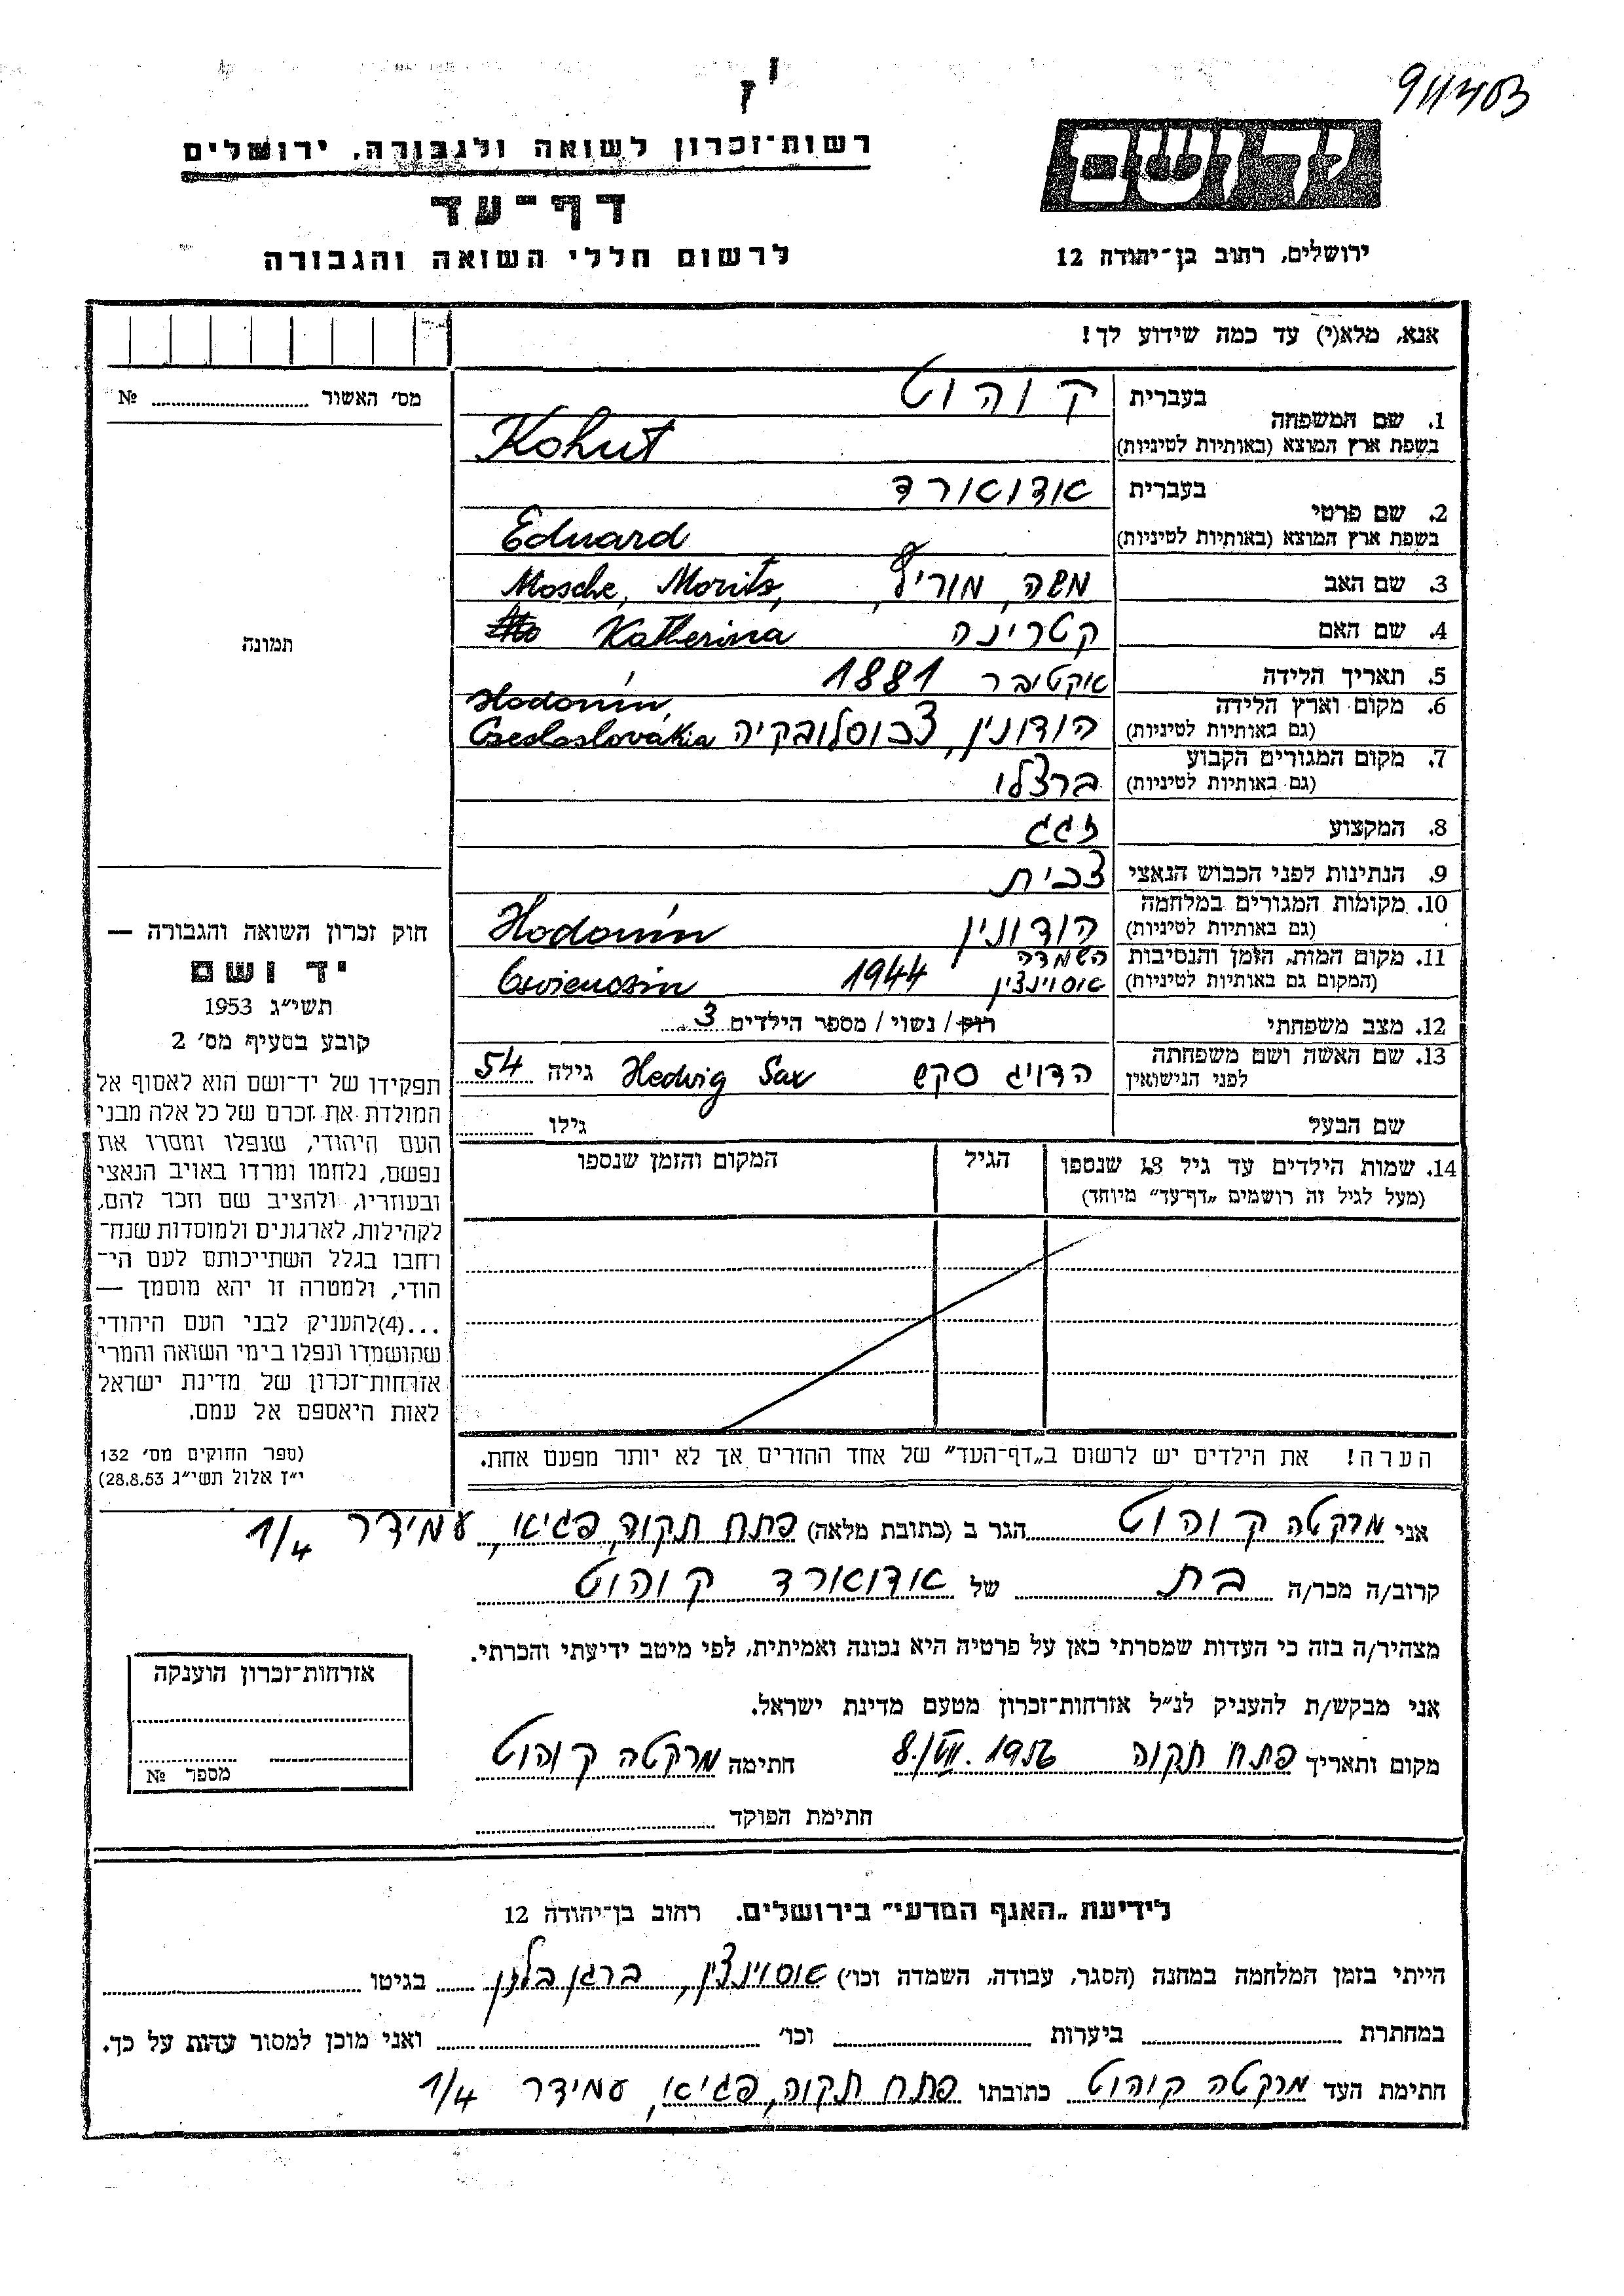 911403
ז'
רשות־זכרון לשואה ולגבורה, ירושלים
יד ושם
דף־עד
לרשום חללי השואה והגבורה
ירושלים, רחוב בן־יהודה 12
אנא, מלא(י) עד כמה שידוע לך!
מס' האשור № 
1. שם המשפחה
בעברית קוהוט
בשפת ארץ המוצא (באותיות לטיניות) Kohut
2. שם פרטי
בעברית אדוארד
בשפת ארץ המוצא (באותיות לטיניות) Eduard
3. שם האב משה, מוריץ, Mosche, Morits,
4. שם האם קטרינה Katherina
5. תאריך הלידה אוקטובר 1881
6. מקום וארץ הלידה
(גם באותיות לטיניות) הודונין, צכוסלובקיה Hodonín, Csechoslovákia
7. מקום המגורים הקבוע
(גם באותיות לטיניות) ברצלו
8. המקצוע זגג
9. הנתינות לפני הכבוש הנאצי צכית
10. מקומות המגורים במלחמה
(גם באותיות לטיניות) הודונין Hodonín
11. מקום המות, הזמן והנסיבות השמדה
(המקום גם באותיות לטיניות) אוסוינצין 1944 Osviencsin
12. מצב משפחתי רוק / נשוי / מספר הילדים 3
13. שם האשה ושם משפחתה
לפני הנישואין הדויג סקש Hedvig Sax גילה 54
שם הבעל גילו
14. שמות הילדים עד גיל 18 שנספו
(מעל לגיל זה רושמים „דף־עד” מיוחד)
הגיל
המקום והזמן שנספו
הערה! את הילדים יש לרשום ב„דף־העד” של אחד ההורים אך לא יותר מפעם אחת.
תמונה
חוק זכרון השואה והגבורה —
יד ושם
תשי״ג 1953
קובע בסעיף מס' 2
תפקידו של יד־ושם הוא לאסוף אל
המולדת את זכרם של כל אלה מבני
העם היהודי, שנפלו ומסרו את
נפשם, נלחמו ומרדו באויב הנאצי
ובעוזריו, ולהציב שם וזכר להם,
לקהילות, לארגונים ולמוסדות שנח־
רחבו בגלל השתייכותם לעם הי־
הודי, ולמטרה זו יהא מוסמך —
...(4) להעניק לבני העם היהודי
שהושמדו ונפלו בימי השואה והמרי
אזרחות־זכרון של מדינת ישראל
לאות היאספם אל עמם.
(ספר החוקים מס' 132
י״ז אלול תשי״ג 28.8.53)
אני מרקטה קוהוט הגר ב (כתובת מלאה) פתח תקוה, פגיאו, עמידר 1/4
קרוב/ה מכר/ה בת של אדוארד קוהוט
מצהיר/ה בזה כי העדות שמסרתי כאן על פרטיה היא נכונה ואמיתית, לפי מיטב ידיעתי והכרתי.
אני מבקש/ת להעניק לנ״ל אזרחות־זכרון מטעם מדינת ישראל.
מקום ותאריך פתח תקוה 8.VIII.1956 חתימה מרקטה קוהוט
חתימת הפוקד
אזרחות־זכרון הוענקה
מספר №
לידיעת „האגף המדעי” בירושלים. רחוב בן־יהודה 12
הייתי בזמן המלחמה במחנה (הסגר, עבודה, השמדה וכו') אוסוינצין, ברגן בלזן בגיטו
במחתרת ביערות וכו' ואני מוכן למסור עדות על כך.
חתימת העד מרקטה קוהוט כתובתו פתח תקוה, פגיאו, עמידר 1/4